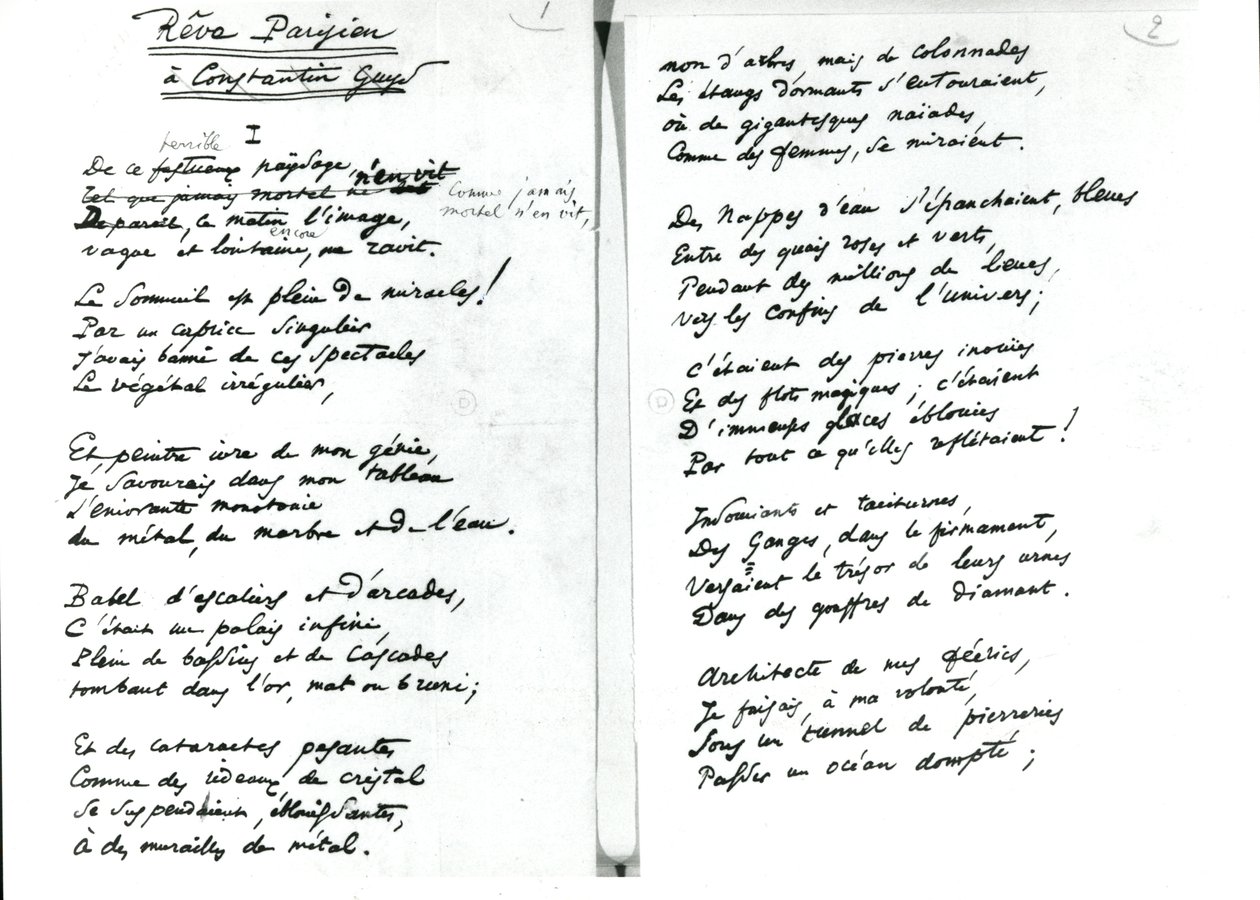 1
Rêve Parisien
à Constantin Guys
I
terrible
De ce fastueux paÿsage,
n'en vit
Tel que jamais mortel ne
Comme jamais
mortel n'en vit,
De pareil, ce matin l'image,
encore
vague et lointaine, me ravit.
Le Sommeil est plein de miracles!
Par un caprice Singulier
J'avais banni de ces Spectacles
Le végétal irrégulier,
Et peintre ivre de mon génie,
Je Savourais dans mon tableau
L'enivrante monotonie
du métal, du marbre et de l'eau.
Babel d'escaliers et d'arcades,
C'était un palais infini,
Plein de bassins et de Cascades
tombant dans l'or, mat ou bruni;
Et des Cataractes pesantes
Comme des rideaux, de cristal
Se Suspendaient, éblouissantes,
à des murailles de métal.
D
2
non d'arbres, mais de Colonnades
Les étangs dormants S'entouraient,
où de gigantesques naïades,
Comme des femmes, Se miraient.
Des Nappes d'eau S'épanchaient, bleues
Entre des quais roses et verts,
Pendant des millions de lieues,
vers les Confins de l'univers;
C'étaient des pierres inouïes
Et des flots magiques; c'étaient
D'immenses glaces éblouies
Par tout ce qu'elles reflétaient!
D
Insouciants et taciturnes,
Des Ganges, dans le firmament,
Versaient le trésor de leurs urnes
Dans des gouffres de Diamant.
Architecte de mes féeries,
Je faisais, à ma volonté,
Sous un tunnel de pierreries
Passer un océan dompté;